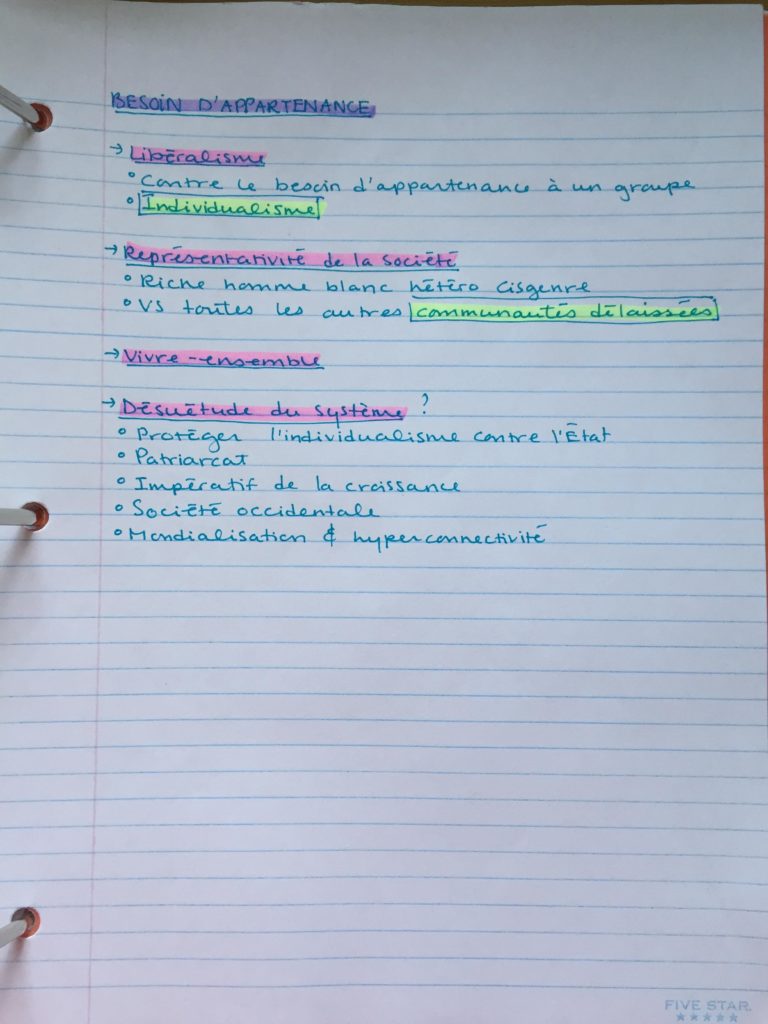 BESOIN D'APPARTENANCE
→ Libéralisme
° Contre le besoin d'appartenance à un groupe
° Individualisme
→ Représentativité de la société
° Riche homme blanc hétéro cisgenre
° VS toutes les autres communautés délaissées
→ Vivre-ensemble
→ Désuétude du système ?
° Protéger l'individualisme contre l'État
° Patriarcat
° Impératif de la croissance
° Société occidentale
° Mondialisation & hyperconnectivité
FIVE STAR.
★★★★★